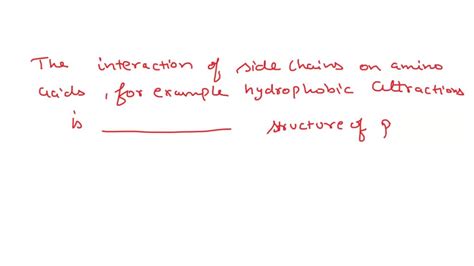 The interaction of side chains on amino
acids, for example hydrophobic attractions
is __________ structure of p